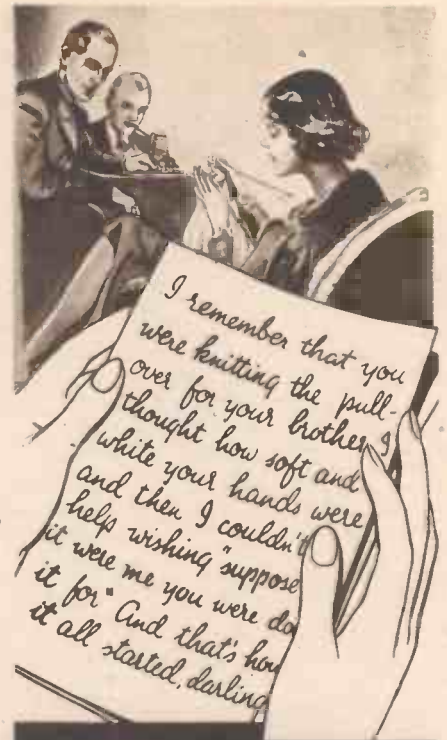 I remember that you
were knitting the pull-
over for your brother. I
thought how soft and
white your hands were
and then I couldn't
help wishing "suppose
it were me you were do
it for" And that's how
it all started, darling